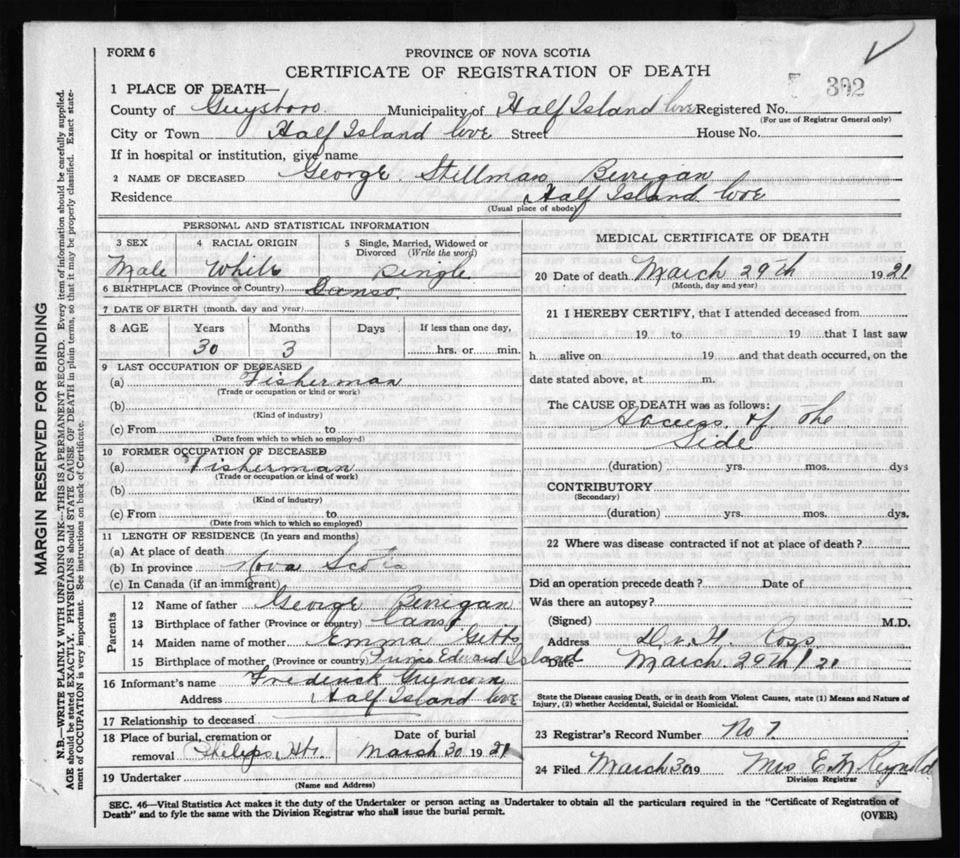 FORM 6
PROVINCE OF NOVA SCOTIA
CERTIFICATE OF REGISTRATION OF DEATH
302
1 PLACE OF DEATH—
County of Guysboro Municipality of Half Island Cove Registered No.
(For use of Registrar General only)
City or Town Half Island Cove Street House No.
If in hospital or institution, give name
2 NAME OF DECEASED George Stillman Berrigan
Residence Half Island Cove
(Usual place of abode)
PERSONAL AND STATISTICAL INFORMATION
3 SEX 4 RACIAL ORIGIN 5 Single, Married, Widowed or Divorced (Write the word)
Male White Single
6 BIRTHPLACE (Province or Country) Canso
7 DATE OF BIRTH (month, day and year)
8 AGE Years Months Days If less than one day,
30 3 hrs. or min.
9 LAST OCCUPATION OF DECEASED
(a) Fisherman
(Trade or occupation or kind or work)
(b)
(Kind of industry)
(c) From to
(Date from which to which so employed)
10 FORMER OCCUPATION OF DECEASED
(a) Fisherman
(Trade or occupation or kind of work)
(b)
(Kind of industry)
(c) From to
(Date from which to which so employed)
11 LENGTH OF RESIDENCE (In years and months)
(a) At place of death
(b) In province Nova Scotia
(c) In Canada (if an immigrant)
Parents
12 Name of father George Berrigan
13 Birthplace of father (Province or country) Canso
14 Maiden name of mother Emma Gitts
15 Birthplace of mother (Province or country) Prince Edward Island
16 Informant's name Frederick
Address Half Island Cove
17 Relationship to deceased
18 Place of burial, cremation or removal Date of burial
Philips Hbr. March 30 1921
19 Undertaker
(Name and Address)
MEDICAL CERTIFICATE OF DEATH
20 Date of death March 29th 1921
(Month, day and year)
21 I HEREBY CERTIFY, that I attended deceased from
19 to 19 that I last saw
h alive on 19 and that death occurred, on the
date stated above, at m.
The CAUSE OF DEATH was as follows:
of the
Side
(duration) yrs. mos. dys
CONTRIBUTORY
(Secondary)
(duration) yrs. mos. dys.
22 Where was disease contracted if not at place of death?
Did an operation precede death? Date of
Was there an autopsy?
(Signed) M.D.
Address Dr. H. Ross
Date March 29th / 21
State the Disease causing Death, or in death from Violent Causes, state (1) Means and Nature of
Injury, (2) whether Accidental, Suicidal or Homicidal.
23 Registrar's Record Number No 7
24 Filed March 30 19 Mrs E. M Reynold
Division Registrar
SEC. 46—Vital Statistics Act makes it the duty of the Undertaker or person acting as Undertaker to obtain all the particulars required in the "Certificate of Registration of
Death" and to fyle the same with the Division Registrar who shall issue the burial permit.
(OVER)
MARGIN RESERVED FOR BINDING
N.B.—WRITE PLAINLY WITH UNFADING INK—THIS IS A PERMANENT RECORD. Every item of information should be carefully supplied.
AGE should be stated EXACTLY. PHYSICIANS should STATE CAUSE OF DEATH in plain terms, so that it may be properly classified. Exact state-
ment of OCCUPATION is very important. See instructions on back of Certificate.